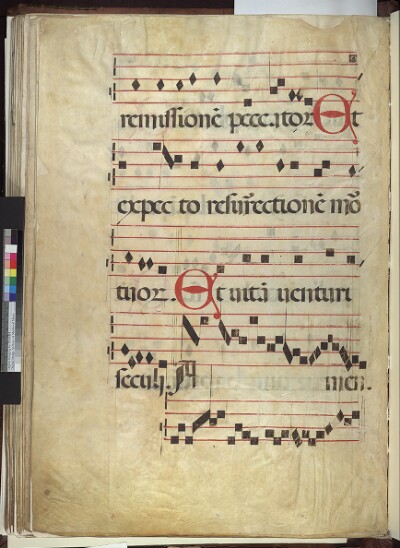 remissionē peccator Et
expecto resurrectionē mo
tuor. Et uitā uenturi
seculi. A men.